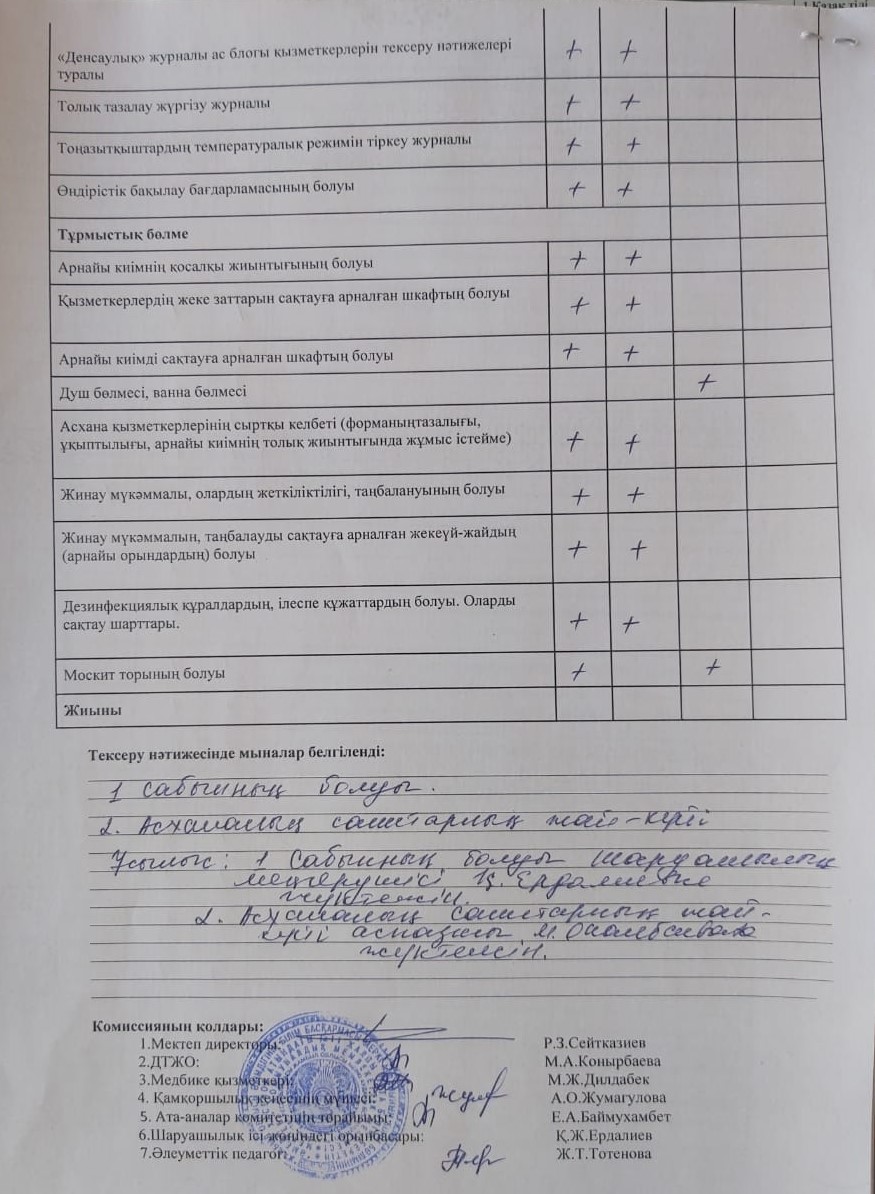 1 Қазақ тілі
«Денсаулық» журналы ас блогы қызметкерлерін тексеру нәтижелері + +
туралы
Толық тазалау жүргізу журналы + +
Тоңазытқыштардың температуралық режимін тіркеу журналы + +
Өндірістік бақылау бағдарламасының болуы + +
Тұрмыстық бөлме
Арнайы киімнің қосалқы жиынтығының болуы + +
Қызметкерлердің жеке заттарын сақтауға арналған шкафтың болуы + +
Арнайы киімді сақтауға арналған шкафтың болуы + +
Душ бөлмесі, ванна бөлмесі +
Асхана қызметкерлерінің сыртқы келбеті (форманыңтазалығы,
ұқыптылығы, арнайы киімнің толық жиынтығында жұмыс істейме) + +
Жинау мүкәммалы, олардың жеткіліктілігі, таңбалануының болуы + +
Жинау мүкәммалын, таңбалауды сақтауға арналған жекеүй-жайдың + +
(арнайы орындардың) болуы
Дезинфекциялық құралдардың, ілеспе құжаттардың болуы. Оларды
сақтау шарттары. + +
Москит торының болуы + +
Жиыны
Тексеру нәтижесінде мыналар белгіленді:
1 Сабынның болуы.
2. Асхананың санитарлық жай-күйі
Ұсыныс: 1 Сабынның болуы шаруашылық
меңгерушісі Қ. Ердалиевке
жүктелсін.
2. Асхананың санитарлық жай-
күйі аспазшы М.
жүктелсін.
Комиссияның қолдары:
1.Мектеп директоры: Р.З.Сейтказиев
2.ДТЖО: М.А.Конырбаева
3.Медбике қызметкері: М.Ж.Дилдабек
4. Қамқоршылық кеңесінің мүшесі: А.О.Жумагулова
5. Ата-аналар комитетінің төрайымы: Е.А.Баймухамбет
6.Шаруашылық ісі жөніндегі орынбасары: Қ.Ж.Ердалиев
7.Әлеуметтік педагог: Ж.Т.Тотенова